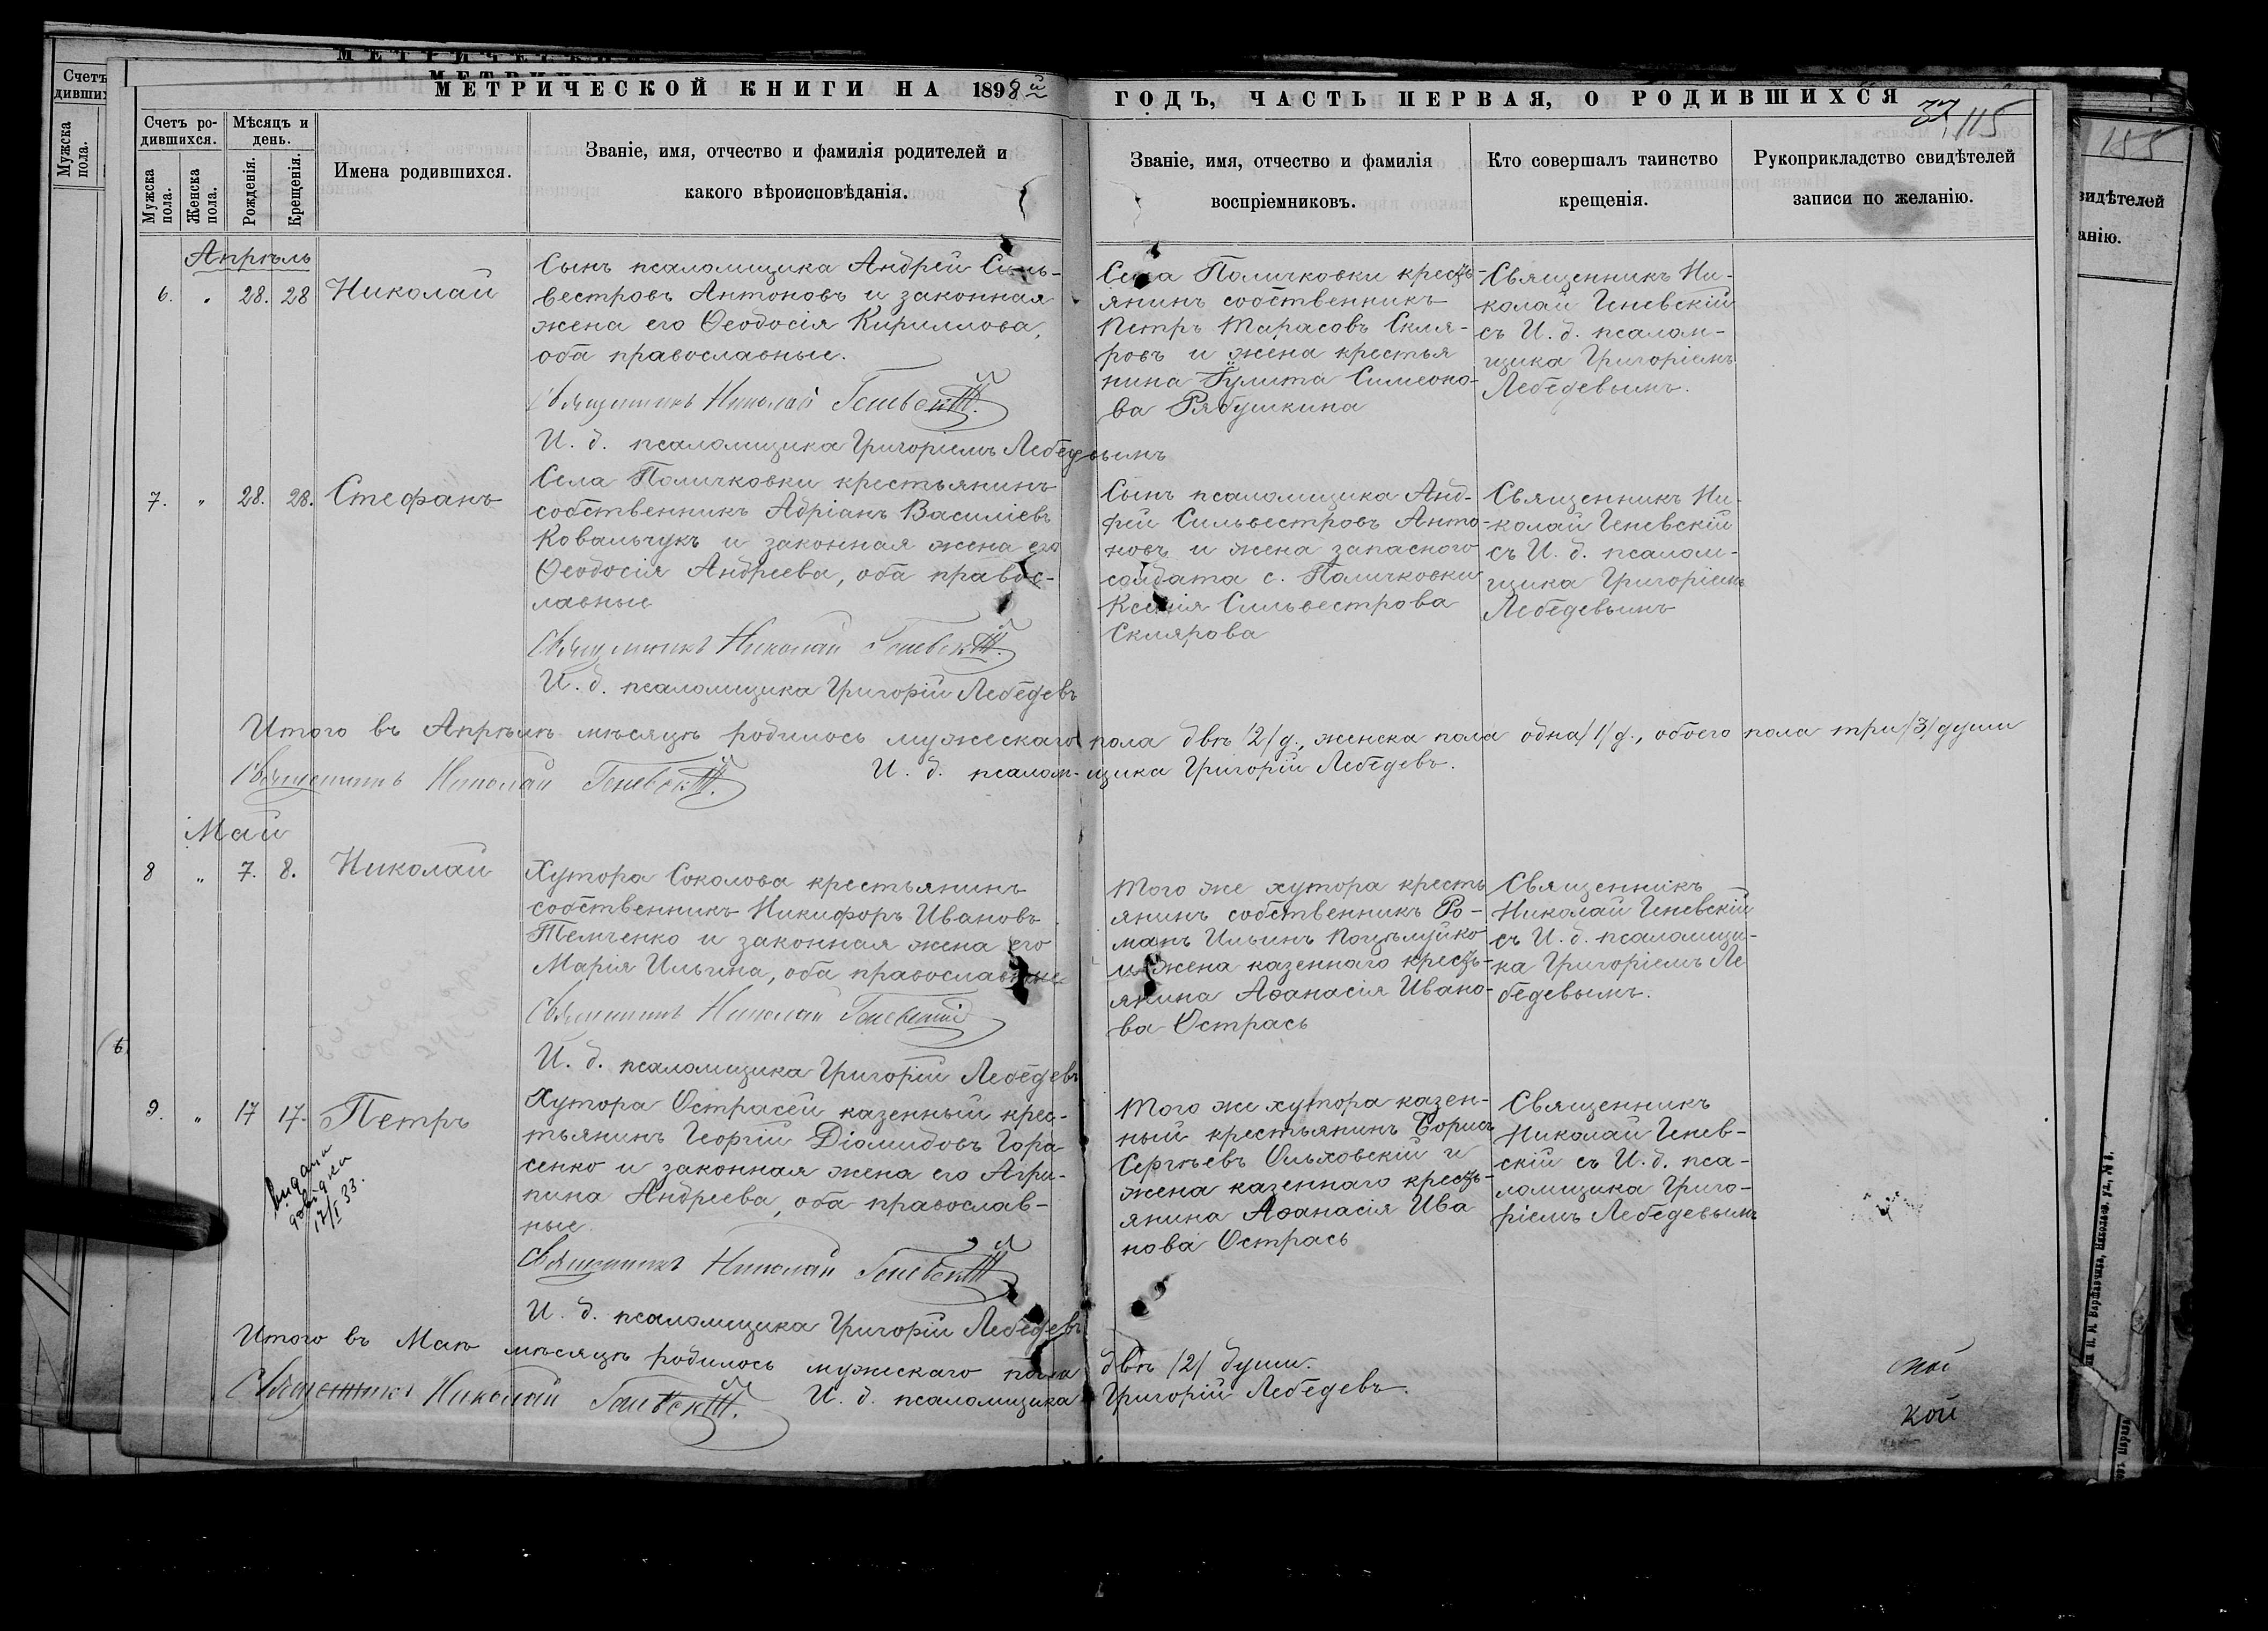 МЕТРИЧЕСКОЙ КНИГИ НА 1898й
ГОДЪ, ЧАСТЬ ПЕРВАЯ, О РОДИВШИХСЯ
37
115
Счетъ ро-
дившихся.
Мѣсяцъ и
день.
Мужска
пола.
Женска
пола.
Рожденія.
Крещенія.
Имена родившихся.
Званіе, имя, отчество и фамилія родителей и
какого вѣроисповѣданія.
Званіе, имя, отчество и фамилія
воспріемниковъ.
Кто совершалъ таинство
крещенія.
Рукоприкладство свидѣтелей
записи по желанію.
Апрѣль
6. " 28. 28 Николай
Сынъ псаломщика Андрей Силь-
вестровъ Антоновъ и законная
жена его Ѳеодосія Кириллова,
оба православные.
Священникъ Николай Геневскій.
И. д. псаломщика Григоріемъ Лебедевымъ
Села Поличковки кресть-
янинъ собственникъ
Петръ Тарасовъ Скля-
ровъ и жена крестья
нина Гулита Симеоно-
ва Рябушкина
Священникъ Ни-
колай Геневскій
съ И. д. псалом-
щика Григоріемъ
Лебедевымъ.
7. " 28. 28. Стефанъ
Села Поличковки крестьянинъ
собственникъ Адріанъ Василіевъ
Ковальчукъ и законная жена его
Ѳеодосія Андреева, оба правос-
лавные
Священникъ Николай Геневскій.
И. д. псаломщика Григорій Лебедевъ
Сынъ псаломщика Анд-
рей Сильвестровъ Анто-
новъ и жена запасного
солдата с. Поличковки
Ксенія Сильвестрова
Склярова
Священникъ Ни-
колай Геневскій
съ И. д. псалом-
щика Григоріемъ
Лебедевымъ
Итого въ Апрѣлѣ мѣсяцѣ родилось мужескаго пола двѣ /2/ д., женска пола одна /1/ д., обоего пола три /3/ души
Священникъ Николай Геневскій. И. д. псалом-щика Григорій Лебедевъ.
Май
8 " 7. 8. Николай
Хутора Соколова крестьянинъ
собственникъ Никифоръ Ивановъ
Темченко и законная жена его
Марія Ильина, оба православные
Священникъ Николай Геневскій
И. д. псаломщика Григорій Лебедевъ
Того же хутора кресть
янинъ собственникъ Ро-
манъ Ильинъ Поцѣлуйко
и жена казеннаго кресть-
янина Аѳанасія Ивано-
ва Острась
Священникъ
Николай Геневскій
съ И. д. псаломщи-
ка Григоріемъ Ле
бедевымъ.
9. " 17 17. Петръ
Видана
довідка
17/I 33.
Хутора Острасей казенный крес-
тьянинъ Георгій Діомидовъ Гора
сенко и законная жена его Агри-
пина Андреева, оба православ-
ные
Священникъ Николай Геневскій
И. д. псаломщика Григорій Лебедевъ
Того же хутора казен-
ный крестьянинъ Борисъ
Сергѣевъ Ольховскій и
жена казеннаго кресть-
янина Аѳанасія Ива
нова Острась
Священникъ
Николай Генев-
скій съ И. д. пса-
ломщика Григо-
ріемъ Лебедевымъ
Итого въ Маѣ мѣсяцѣ родилось мужескаго пола двѣ /2/ души.
Священникъ Николай Геневскій. И. д. псаломщика Григорій Лебедевъ.
кой
Счетъ
дивших
Мужска
пола.
155
видѣтелей
анію.